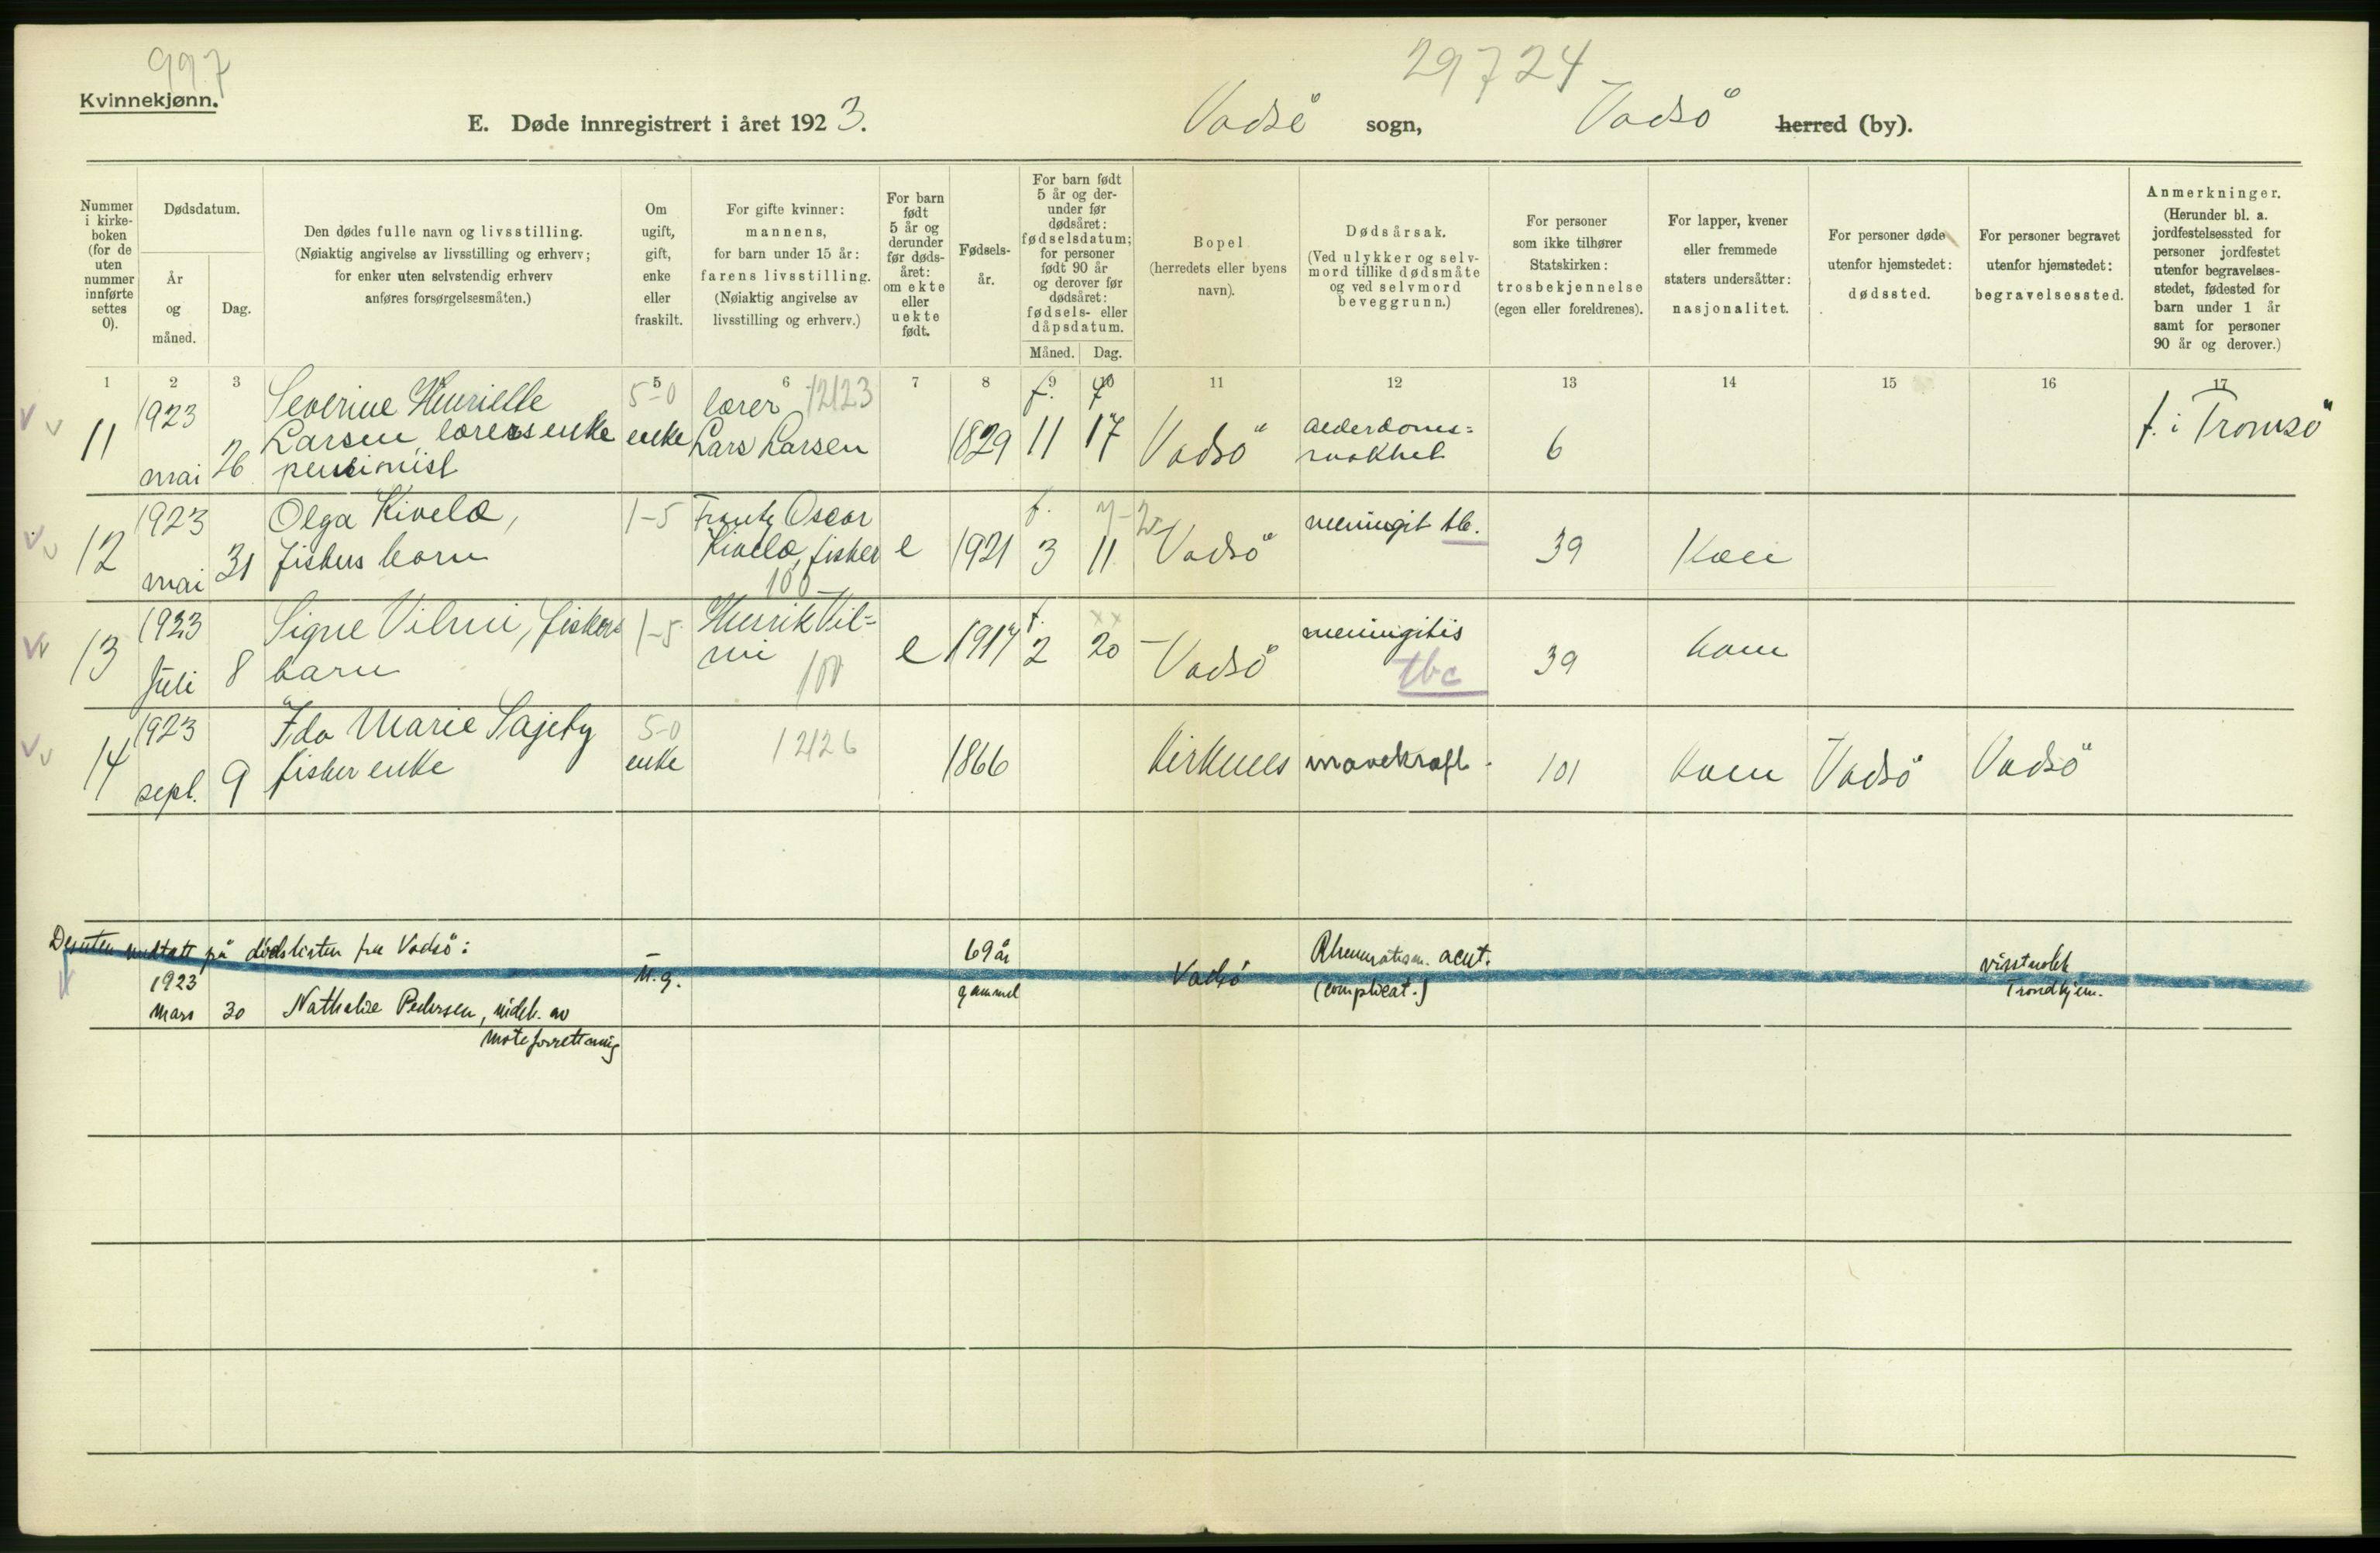 997
29724
Kvinnekjønn.
E. Døde innregistrert i året 1923. Vadsö sogn, Vadsö herred (by).
Nummer i kirke-boken (for de uten nummer innførte settes 0).
Dødsdatum.
År og måned.
Dag.
Den dødes fulle navn og livsstilling.
(Nøiaktig angivelse av livsstilling og erhverv;
for enker uten selvstendig erhverv
anføres forsørgelsesmåten.)
Om ugift, gift, enke eller fraskilt.
For gifte kvinner: mannens,
for barn under 15 år: farens livsstilling.
(Nøiaktig angivelse av livsstilling og erhverv.)
For barn født 5 år og derunder før døds-året: om ekte eller uekte født.
Fødsels-år.
For barn født 5 år og der-under før dødsåret: fødselsdatum; for personer født 90 år og derover før dødsåret: fødsels- eller dåpsdatum.
Måned. Dag.
Bopel
(herredets eller byens navn).
Dødsårsak.
(Ved ulykker og selv-mord tillike dødsmåte og ved selvmord beveggrunn.)
For personer som ikke tilhører Statskirken: trosbekjennelse (egen eller foreldrenes).
For lapper, kvener eller fremmede staters undersåtter: nasjonalitet.
For personer døde utenfor hjemstedet: dødssted.
For personer begravet utenfor hjemstedet: begravelsessted.
Anmerkninger.
(Herunder bl. a. jordfestelsessted for personer jordfestet utenfor begravelses-stedet, fødested for barn under 1 år samt for personer 90 år og derover.)
1 2 3 5 6 7 8 9 10 11 12 13 14 15 16 17
11 1923 mai 26 Severine Henrielle
Larsen lærers enke
pensionist
5-0 enke
lærer 12123
Lars Larsen
1829 f. 11 f 17 Vadsö alderdoms=
svakhet
6 f. i Tromsö
12 1923 mai 31 Olga Kivelæ,
fiskers barn
1-5 Frantz Oscar
Kivelæ, fisker
100
e 1921 f. 3 11 Vadsö meningit tb. 39 Kven
13 1923 Juli 8 Signe Vilmi, fiskers
barn
1-5 Henrik Vil=
mi
100
e 1917 f. 2 xx 20 Vadsö meningitis
tbc
39 kven
14 1923 sept. 9 Ida Marie Sajety
fisker enke
5-0 enke 12126 1866 Kirkenes mavekræft. 101 kven Vadsö Vadsö
Desuten medtatt på dödslisten fra Vadsö:
1923 mars 30 Nathalie Pedersen, indeh. av
moteforretning
u.g. 69 år
gammel
Vadsö Rheumatism. acut.
(complicat.)
visstnokk
Trondhjem.